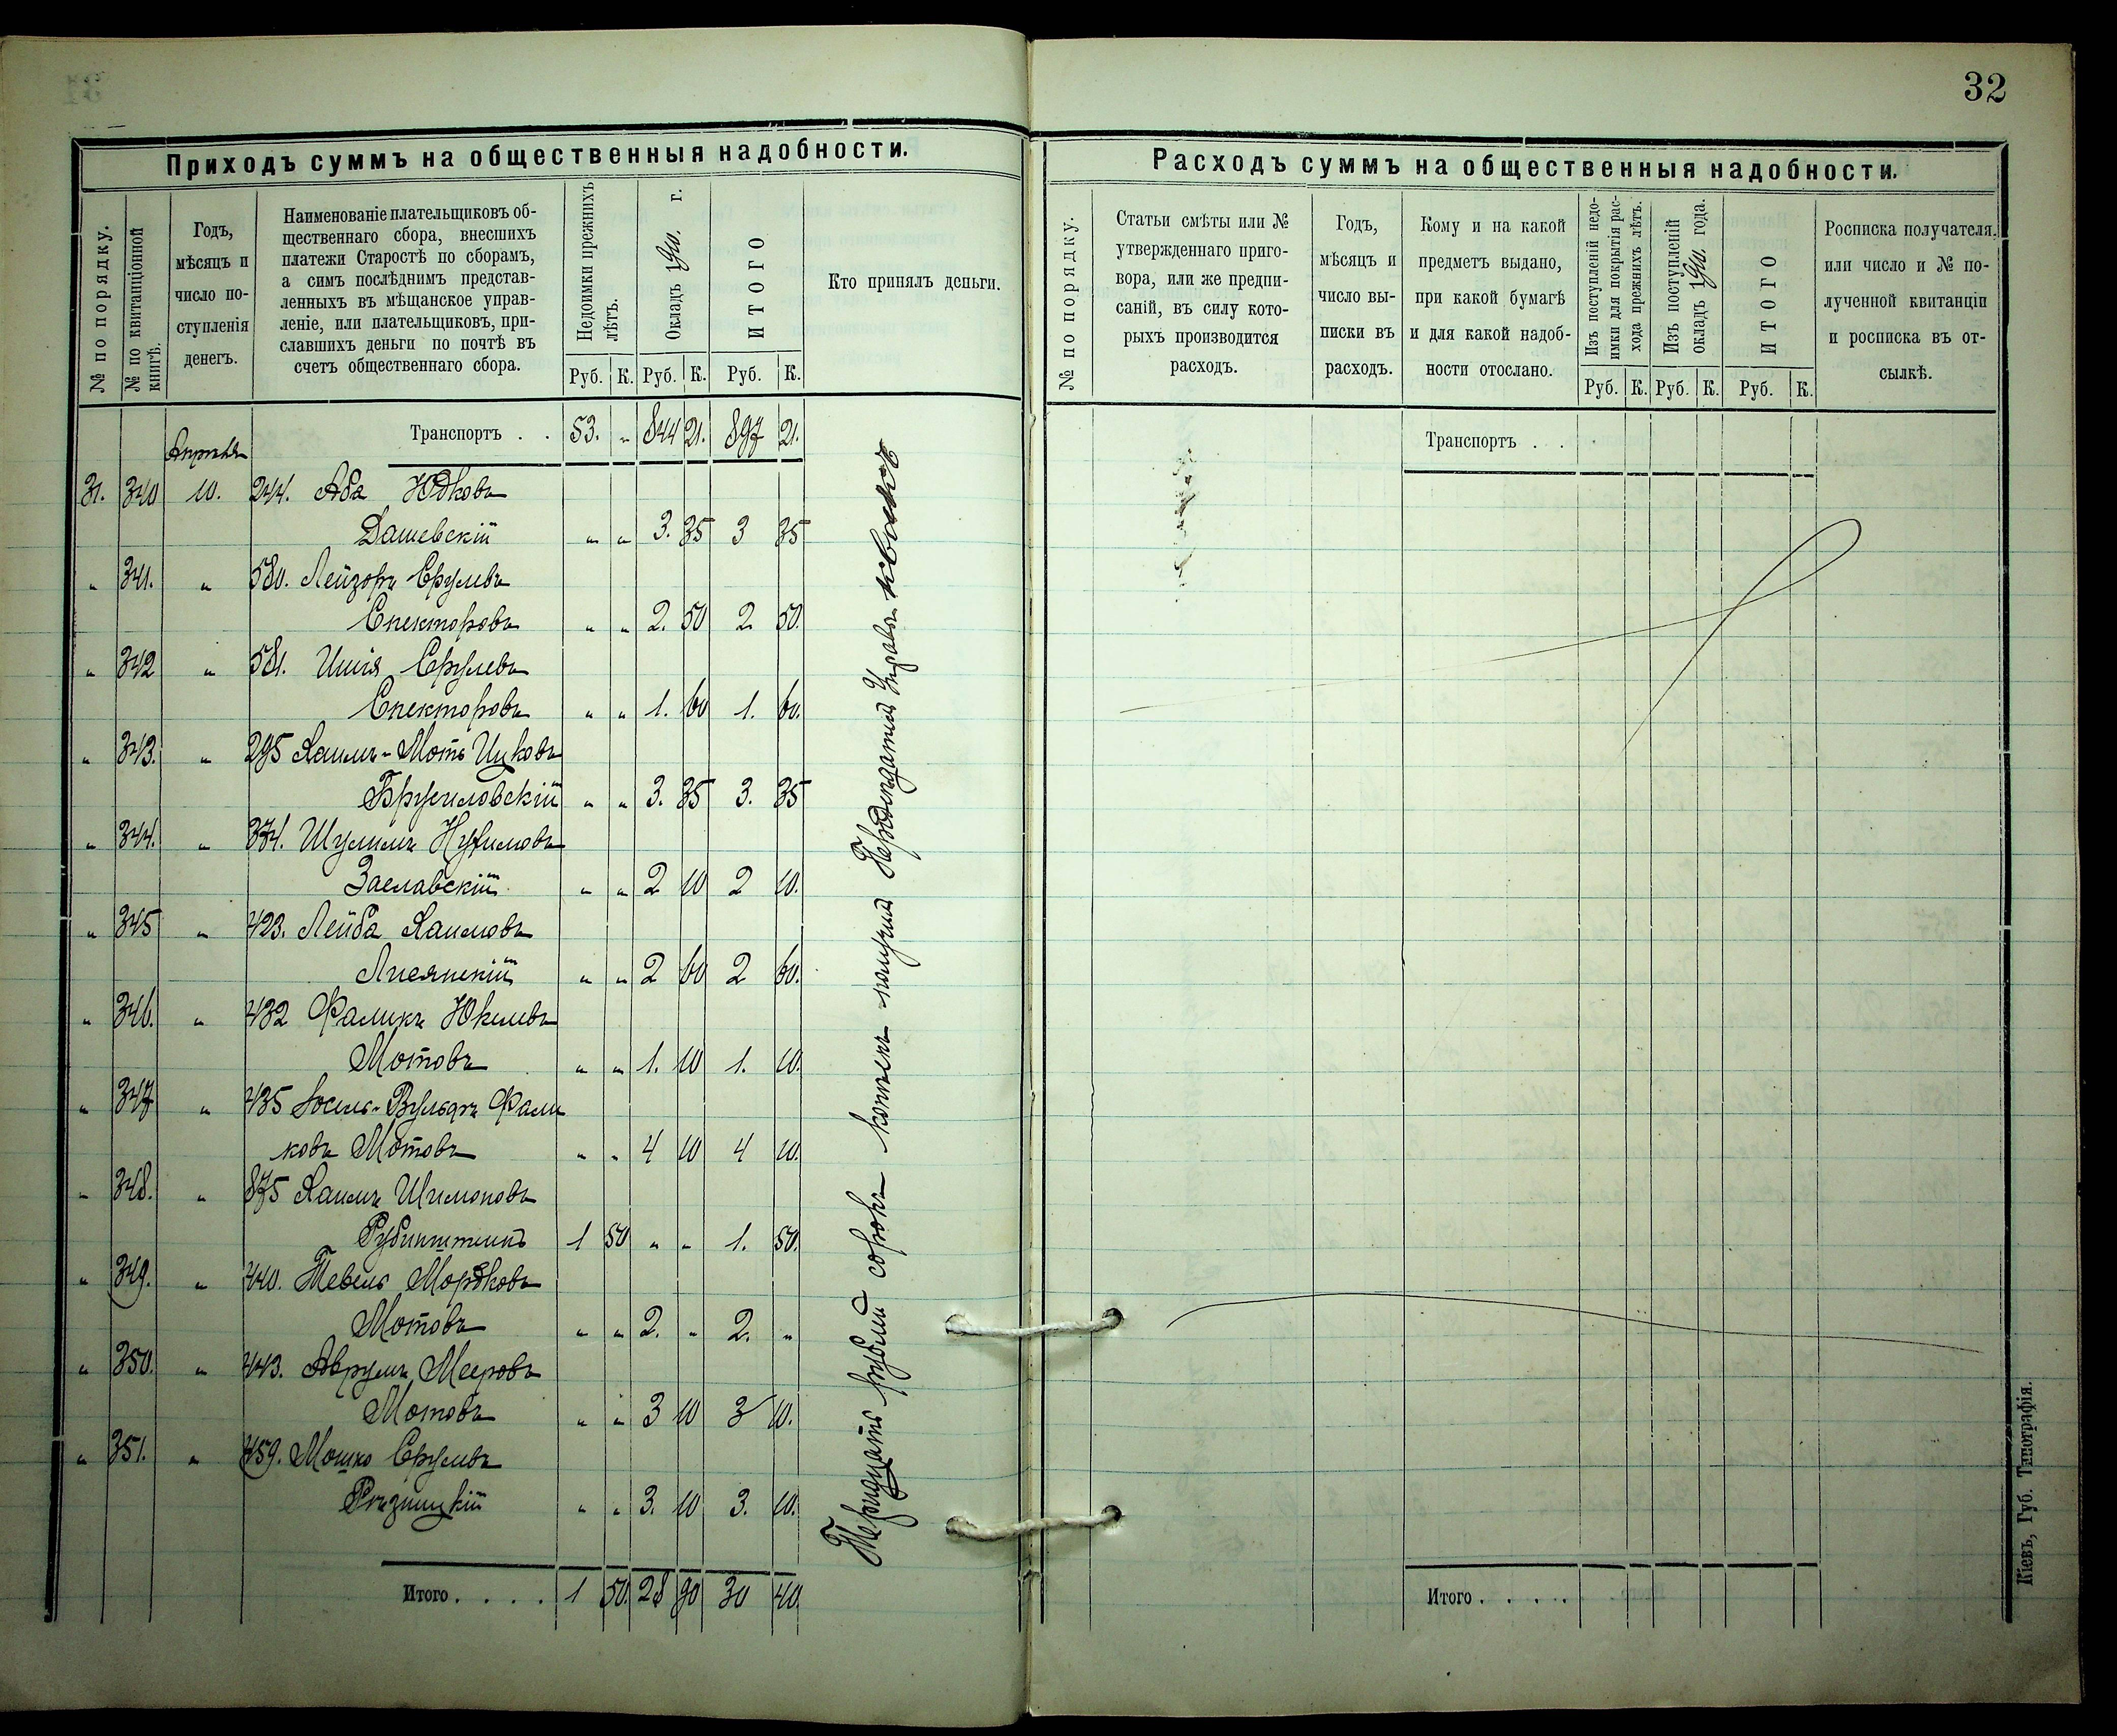 32
Приходъ суммъ на общественныя надобности.
№ по порядку.
№ по квитанціонной книгѣ.
Годъ,
мѣсяцъ и
число по-
ступленія
денегъ.
Наименованіе плательщиковъ об-
щественнаго сбора, внесшихъ
платежи Старостѣ по сборамъ,
а симъ послѣднимъ представ-
ленныхъ въ мѣщанское управ-
леніе, или плательщиковъ, при-
славшихъ деньги по почтѣ въ
счетъ общественнаго сбора.
Недоимки прежнихъ
лѣтъ.
Окладъ г.
ИТОГО
Кто принялъ деньги.
Руб. К. Руб. К. Руб. К.
Транспортъ . . 53. „ 844 21. 897 21.
Апрѣля
31. 340 10. 244. Аба Юдковъ
Дашевскій „ „ 3. 35 3 35
„ 341. „ 580. Лейзоръ Срулевъ
Спекторовъ „ „ 2. 50 2 50.
„ 342 „ 581. Ишія Срулевъ
Спекторовъ „ „ 1. 60 1. 60.
„ 343. „ 295 Хаимъ-Моть Ицковъ
Брусиловскій „ „ 3. 35 3. 35
„ 344. „ 374. Шулимъ Нухимовъ
Заславскій „ „ 2 10 2 10.
„ 345 „ 423. Лейба Хаимовъ
Лисянскій „ „ 2 60 2 60.
„ 346. „ 432 Фаликъ Юкелевъ
Мотовъ „ „ 1. 10 1. 10.
„ 347 „ 435 Іосель-Вульфъ Фали
ковъ Мотовъ „ „ 4 10 4 10.
„ 348. „ 875 Хаимъ Шимоновъ
Рубинштеинъ 1 50 „ „ 1. 50.
„ 349. „ 440. Тевель Мордковъ
Мотовъ „ „ 2. „ 2. „
„ 350. „ 443. Аврумъ Мееровъ
Мотовъ „ „ 3 10 3 10.
„ 351. „ 459. Мошко Срулевъ
Рѣзницкій „ „ 3. 10 3. 10.
Итого . . . . 1 50. 28 90 30 40.
Тридцать рублей сорокъ копѣекъ получилъ Управы
Расходъ суммъ на общественныя надобности.
№ по порядку.
Статьи смѣты или №
утвержденнаго приго-
вора, или же предпи-
саній, въ силу кото-
рыхъ производится
расходъ.
Годъ,
мѣсяцъ и
число вы-
писки въ
расходъ.
Кому и на какой
предметъ выдано,
при какой бумагѣ
и для какой надоб-
ности отослано.
Изъ поступленій недо-
имки для покрытія рас-
хода прежнихъ лѣтъ.
Изъ поступленій
окладъ года.
ИТОГО
Росписка получателя.
или число и № по-
лученной квитанціи
и росписка въ от-
сылкѣ.
Руб. К. Руб. К. Руб. К.
Транспортъ . .
Итого . . . . .
Кіевъ, Губ. Типографія.